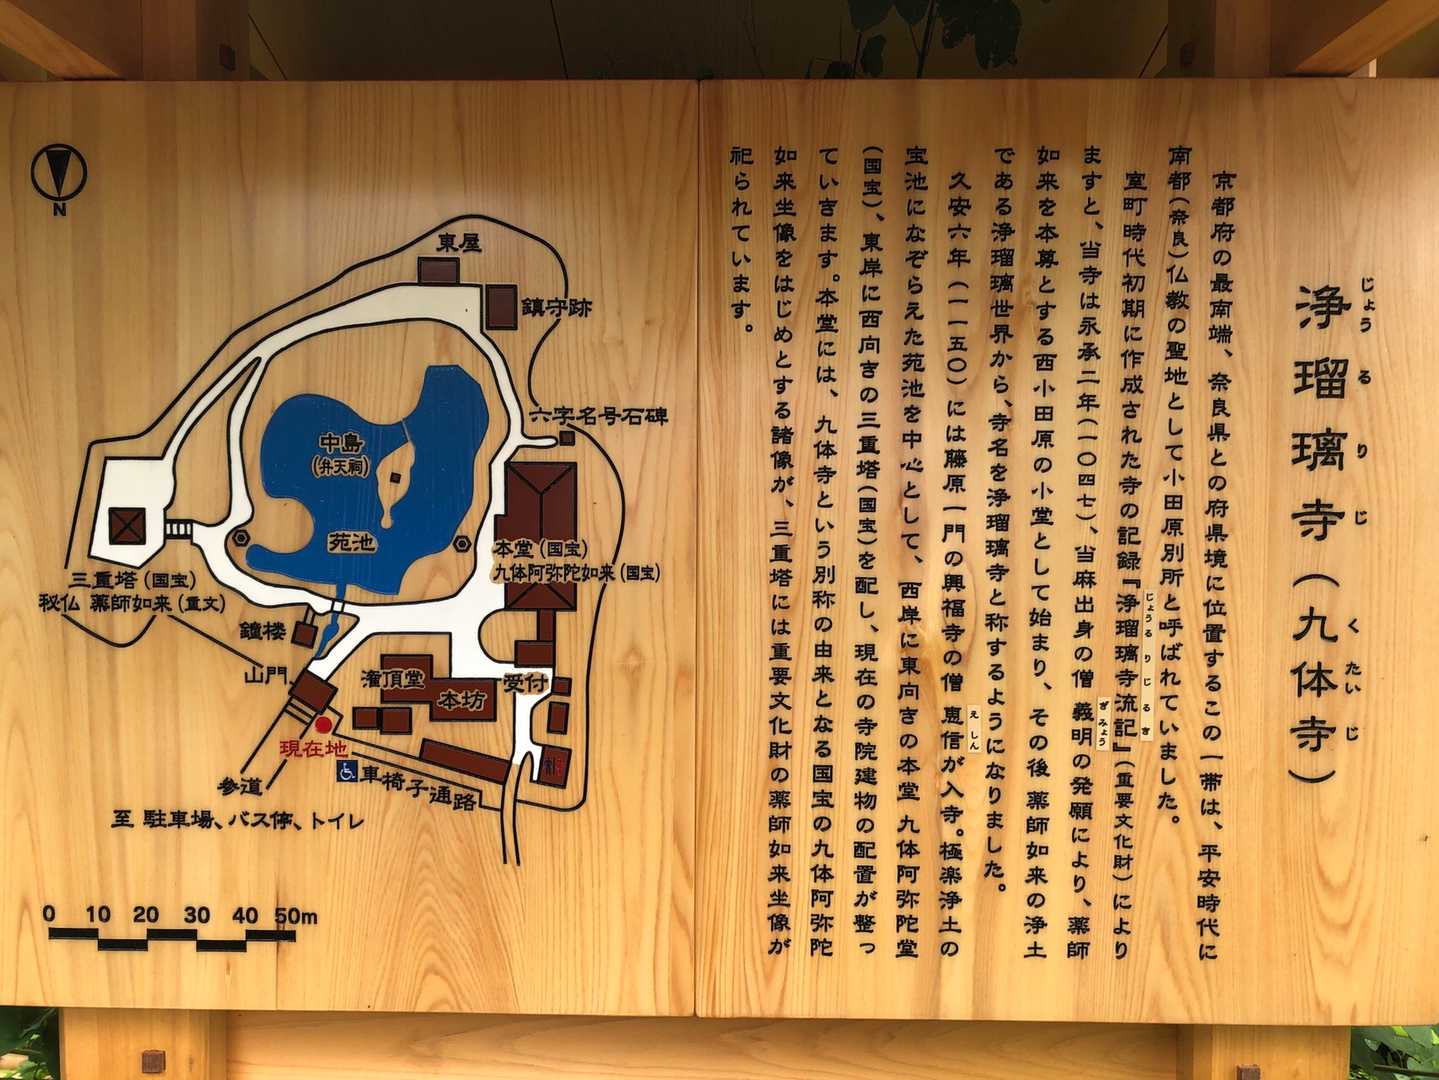 浄瑠璃寺（九体寺）
じょうるりじ
くたいじ
京都府の最南端、奈良県との府県境に位置するこの一帯は、平安時代に
南都（奈良）仏教の聖地として小田原別所と呼ばれていました。
室町時代初期に作成された寺の記録『浄瑠璃寺流記』（重要文化財）により
じょうるりじるき
ますと、当寺は永承二年（一〇四七）、当麻出身の僧 義明の発願により、薬師
ぎみょう
如来を本尊とする西小田原の小堂として始まり、その後 薬師如来の浄土
である浄瑠璃世界から、寺名を浄瑠璃寺と称するようになりました。
久安六年（一一五〇）には藤原一門の興福寺の僧 恵信が入寺。極楽浄土の
えしん
宝池になぞらえた苑池を中心として、西岸に東向きの本堂 九体阿弥陀堂
（国宝）、東岸に西向きの三重塔（国宝）を配し、現在の寺院建物の配置が整っ
ていきます。本堂には、九体寺という別称の由来となる国宝の九体阿弥陀
如来坐像をはじめとする諸像が、三重塔には重要文化財の薬師如来坐像が
祀られています。
N
東屋
鎮守跡
六字名号石碑
中島
（弁天祠）
苑池
本堂（国宝）
九体阿弥陀如来（国宝）
三重塔（国宝）
秘仏 薬師如来（重文）
鐘楼
山門
灌頂堂
本坊
受付
現在地
車椅子通路
参道
至 駐車場、バス停、トイレ
0 10 20 30 40 50m